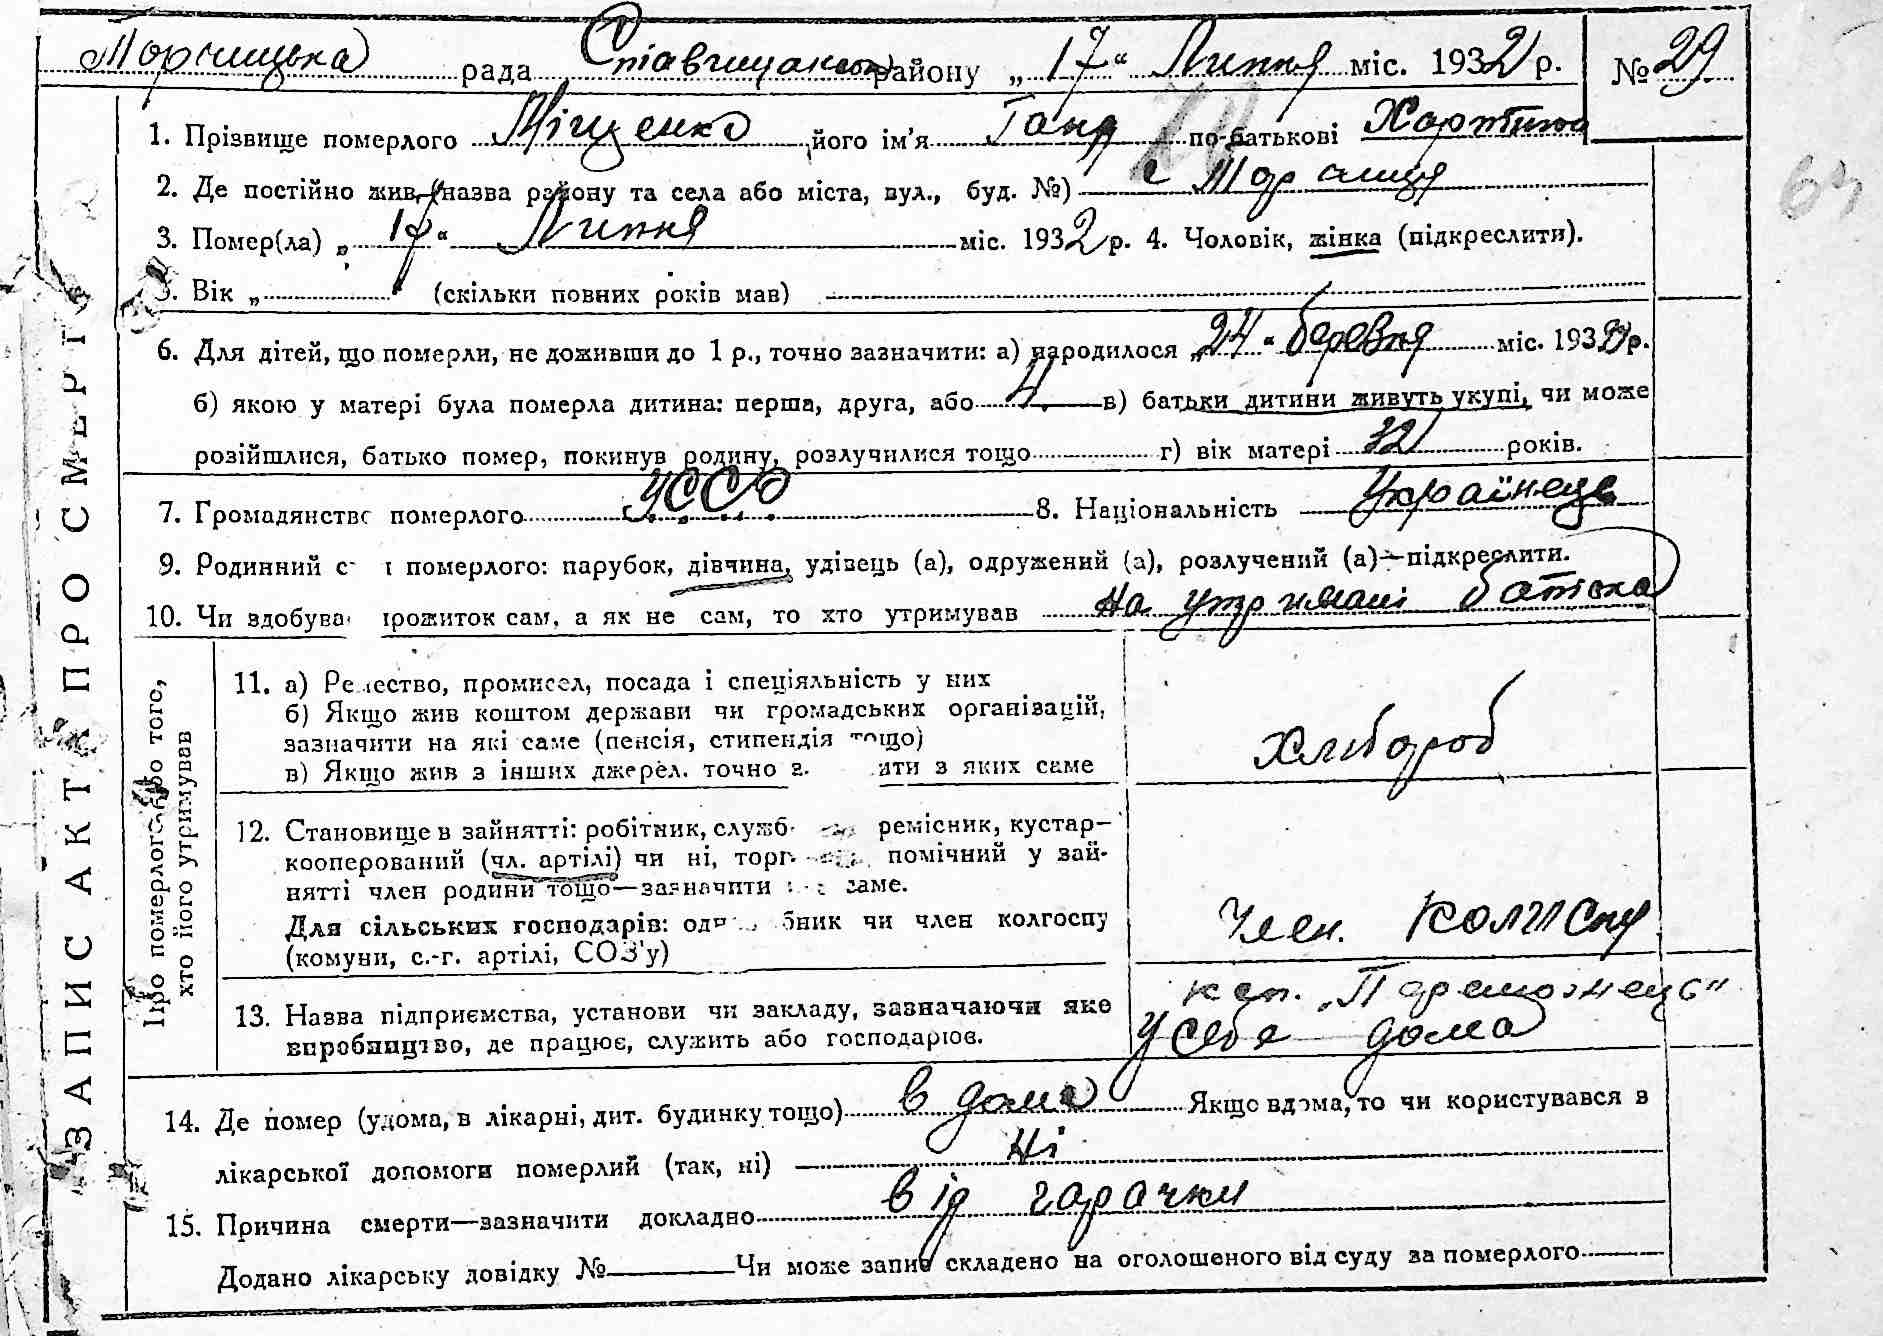 Торчицька рада Ставищанського району „ 17 “ Липня міс. 1932 р. № 29
1. Прізвище померлого Міщенко його ім'я Ганя по-батькові Хартина
2. Де постійно жив (назва району та села або міста, вул., буд. №) с Торчиця
3. Помер(ла) „ 17 “ Липня міс. 1932 р. 4. Чоловік, жінка (підкреслити).
5. Вік „ (скільки повних років мав)
6. Для дітей, що померли, не доживши до 1 р., точно зазначити: а) народилося „ 24 “ березня міс. 193 р.
б) якою у матері була померла дитина: перша, друга, або 4. в) батьки дитини живуть укупі, чи може
розійшлися, батько помер, покинув родину, розлучилися тощо г) вік матері 32 років.
7. Громадянство померлого УССР 8. Національність Українець
9. Родинний с і померлого: парубок, дівчина, удівець (а), одружений (а), розлучений (а)—підкреслити.
10. Чи здобува прожиток сам, а як не сам, то хто утримував На утримані батька
ЗАПИС АКТ ПРО СМЕРТ
Про померлого або того, хто його утримував
11. а) Ремество, промисел, посада і спеціяльність у них
б) Якщо жив коштом держави чи громадських організацій,
зазначити на які саме (пенсія, стипендія тощо)
в) Якщо жив з інших джерел, точно з ати з яких саме
Хлібороб
12. Становище в зайнятті: робітник, служб ремісник, кустар-
кооперований (чл. артілі) чи ні, торг помічний у зай-
нятті член родини тощо—зазначити саме.
Для сільських господарів: од бник чи член колгоспу
(комуни, с.-г. артілі, СОЗ'у)
Член. колгоспу
13. Назва підприємства, установи чи закладу, зазначаючи яке
виробництво, де працює, служить або господарює.
ксп. „Переможець“
У себе дома
14. Де помер (удома, в лікарні, дит. будинку тощо) в дома Якщо вдома, то чи користувався з
лікарської допомоги померлий (так, ні) Ні
15. Причина смерти—зазначити докладно від гарачки
Додано лікарську довідку № Чи може запис складено на оголошеного від суду за померлого